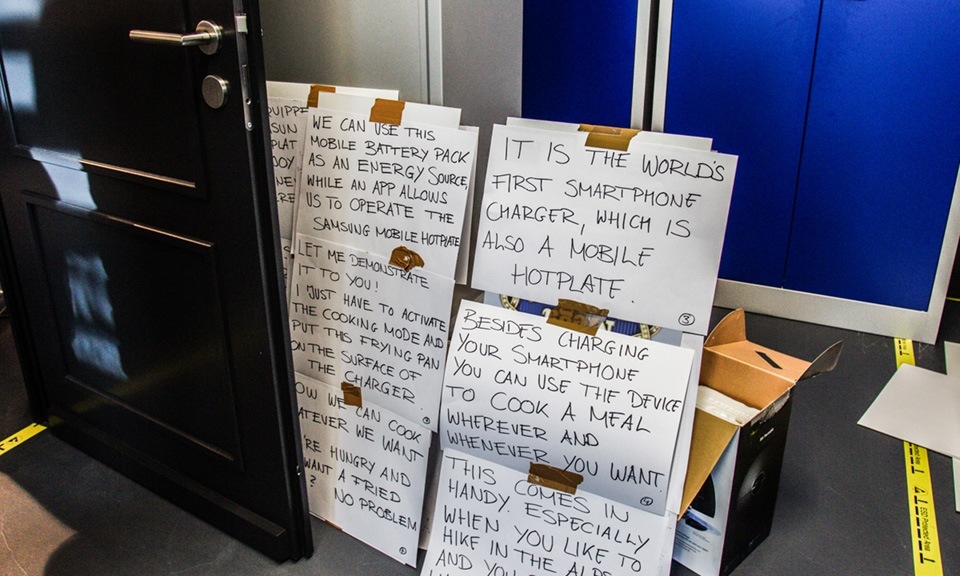 SUN
WE CAN USE THIS
MOBILE BATTERY PACK
AS AN ENERGY SOURCE,
WHILE AN APP ALLOWS
US TO OPERATE THE
SAMSUNG MOBILE HOTPLATE
LET ME DEMONSTRATE
IT TO YOU!
I JUST HAVE TO ACTIVATE
THE COOKING MODE AND
PUT THIS FRYING PAN
ON THE SURFACE OF
THE CHARGER.
OW WE CAN COOK
ATEVER WE WANT
'RE HUNGRY AND
WANT A FRIED
? NO PROBLEM
IT IS THE WORLD'S
FIRST SMARTPHONE
CHARGER, WHICH IS
ALSO A MOBILE
HOTPLATE.
3
BESIDES CHARGING
YOUR SMARTPHONE
YOU CAN USE THE DEVICE
TO COOK A MEAL
WHEREVER AND
WHENEVER YOU WANT.
4
THIS COMES IN
HANDY. ESPECIALLY
WHEN YOU LIKE TO
HIKE IN THE ALPS
AND YOU
ESD Protected Area